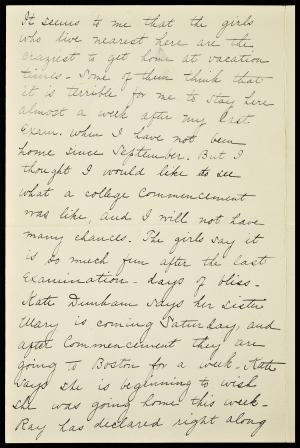 It seems to me that the girls
who live nearest here are the
craziest to get home at vacation
times - Some of them think that
it is terrible for me to stay here
almost a week after my last
Exam. when I have not been
home since September. But I
thought I would like to see
what a college Commencement
was like, and I will not have
many chances. The girls say it
is so much fun after the last
Examination - days of bliss -
Kate Dunham says her sister
Mary is coming Saturday, and
after Commencement they are
going to Boston for a week. Kate
says she is beginning to wish
she was going home this week -
Ray has declared right along